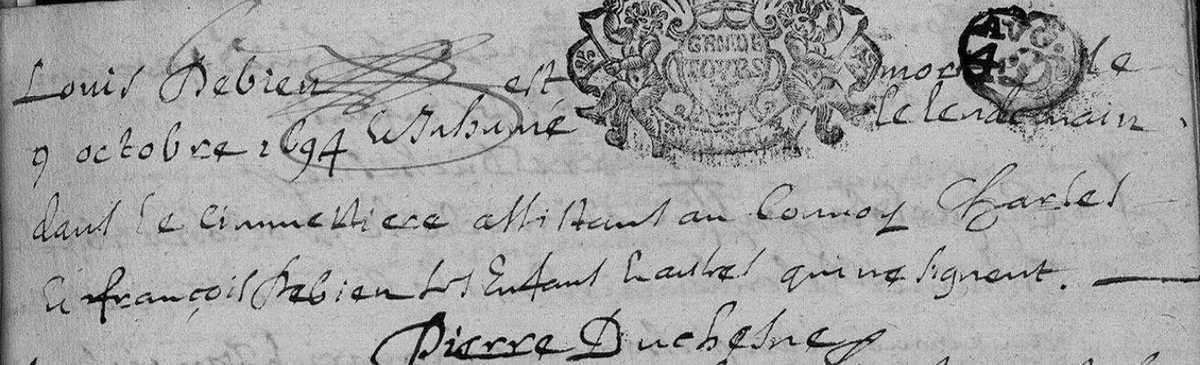 Louis Debien est mort le
GEN. DE
TOVRS
9 octobre 1694 et Inhumé le lendemain
dans le cimmettiere assistant au Convoy Charles
et françois Debien ses Enfans et autres qui ne signent.
Pierre Duchesne